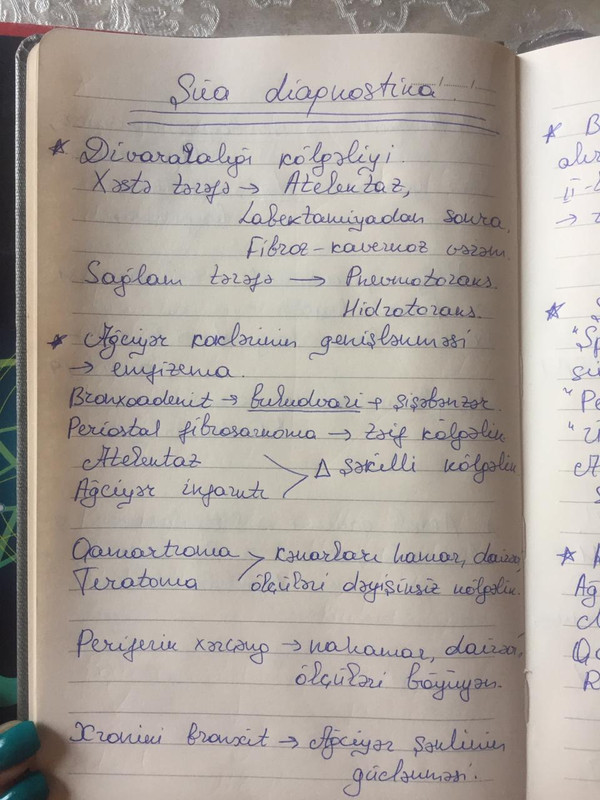 Şüa diapnostika!
* Divararalığı kölgəliyi.
Xəstə tərəfə → Atelektaz,
Labektamiyadan sonra,
Fibroz-kavernoz vərəm.
Sağlam tərəfə → Pnevmotoraks.
Hidrotoraks.
* Ağciyər köklərinin genişlənməsi
→ emfizema.
Bronxoadenit → buludvari + şişəbənzər.
Periostal fibrosarkoma → zəif kölgəlik
Atelektaz
Ağciyər infarktı > Δ şəkilli kölgəlik
Qamartroma > kənarları hamar, dairəvi,
Teratoma ölçüləri dəyişinsiz kölgəlik.
Periferik xərçəng → nahamar, dairəvi,
ölçüləri böyüyən.
Xroniki bronxit → Ağciyər şəklinin
güclənməsi.
* B
II-
→
*
"Sp
"Pe
*
Ağ